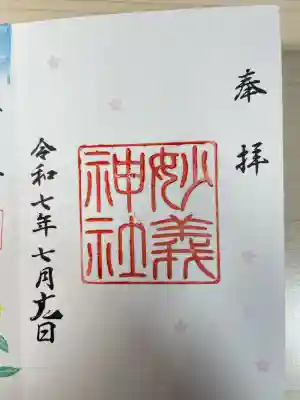 奉拝
妙義
神社
令和七年七月日